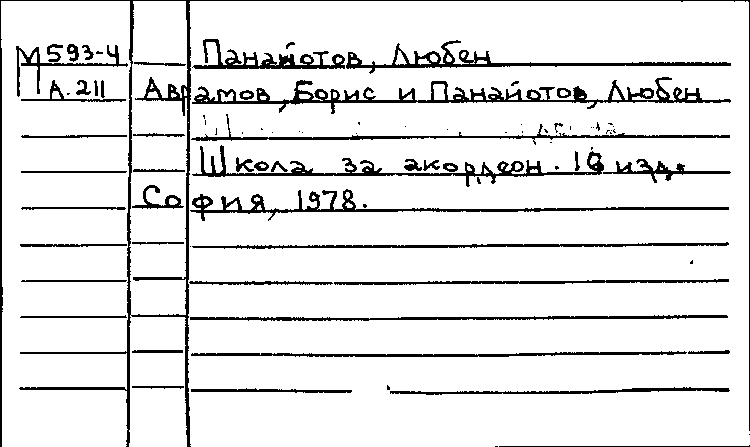 М593-4 Панайотов, Любен
А.211 Аврамов, Борис и Панайотов, Любен
Школа за акордеон. 16 изд.
София, 1978.